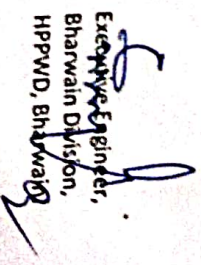 Executive Engineer,
Bharwain Division,
HPPWD, Bharwain